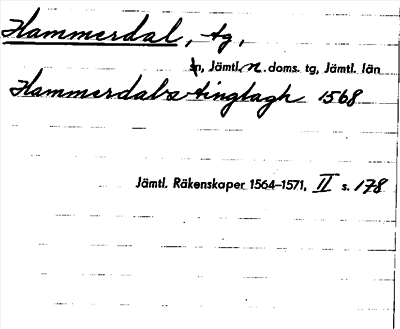 Hammerdal, tg,
tn, Jämtl. n. doms. tg, Jämtl. län
Hammerdals tinglagh 1568
Jämtl. Räkenskaper 1564–1571, II s. 178